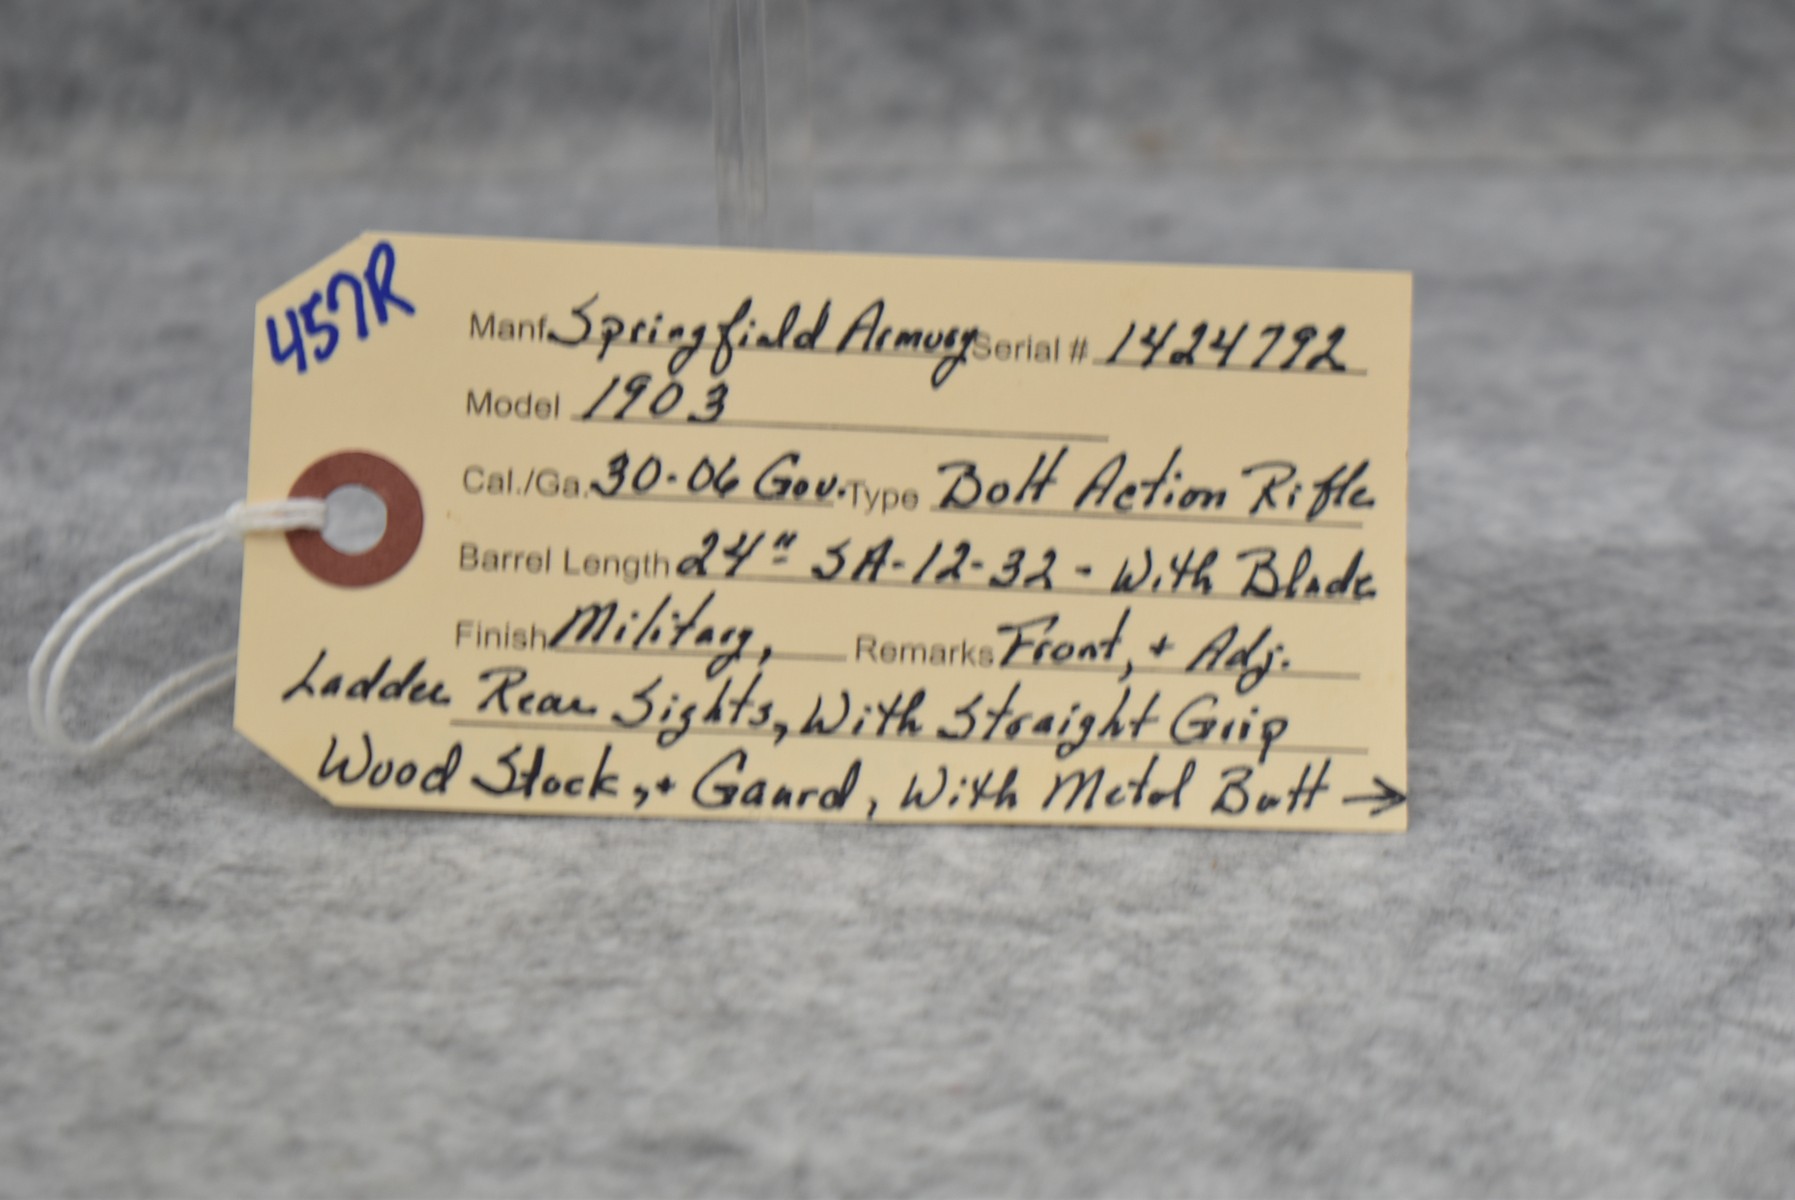 457R
Manf. Springfield Armory Serial # 1424792
Model 1903
Cal./Ga. 30-06 Gov. Type Bolt Action Rifle
Barrel Length 24" SA-12-32 - With Blade
Finish Military, Remarks Front, + Adj.
Ladder Rear Sights, With Straight Grip
Wood Stock, + Gaurd, With Metal Butt →